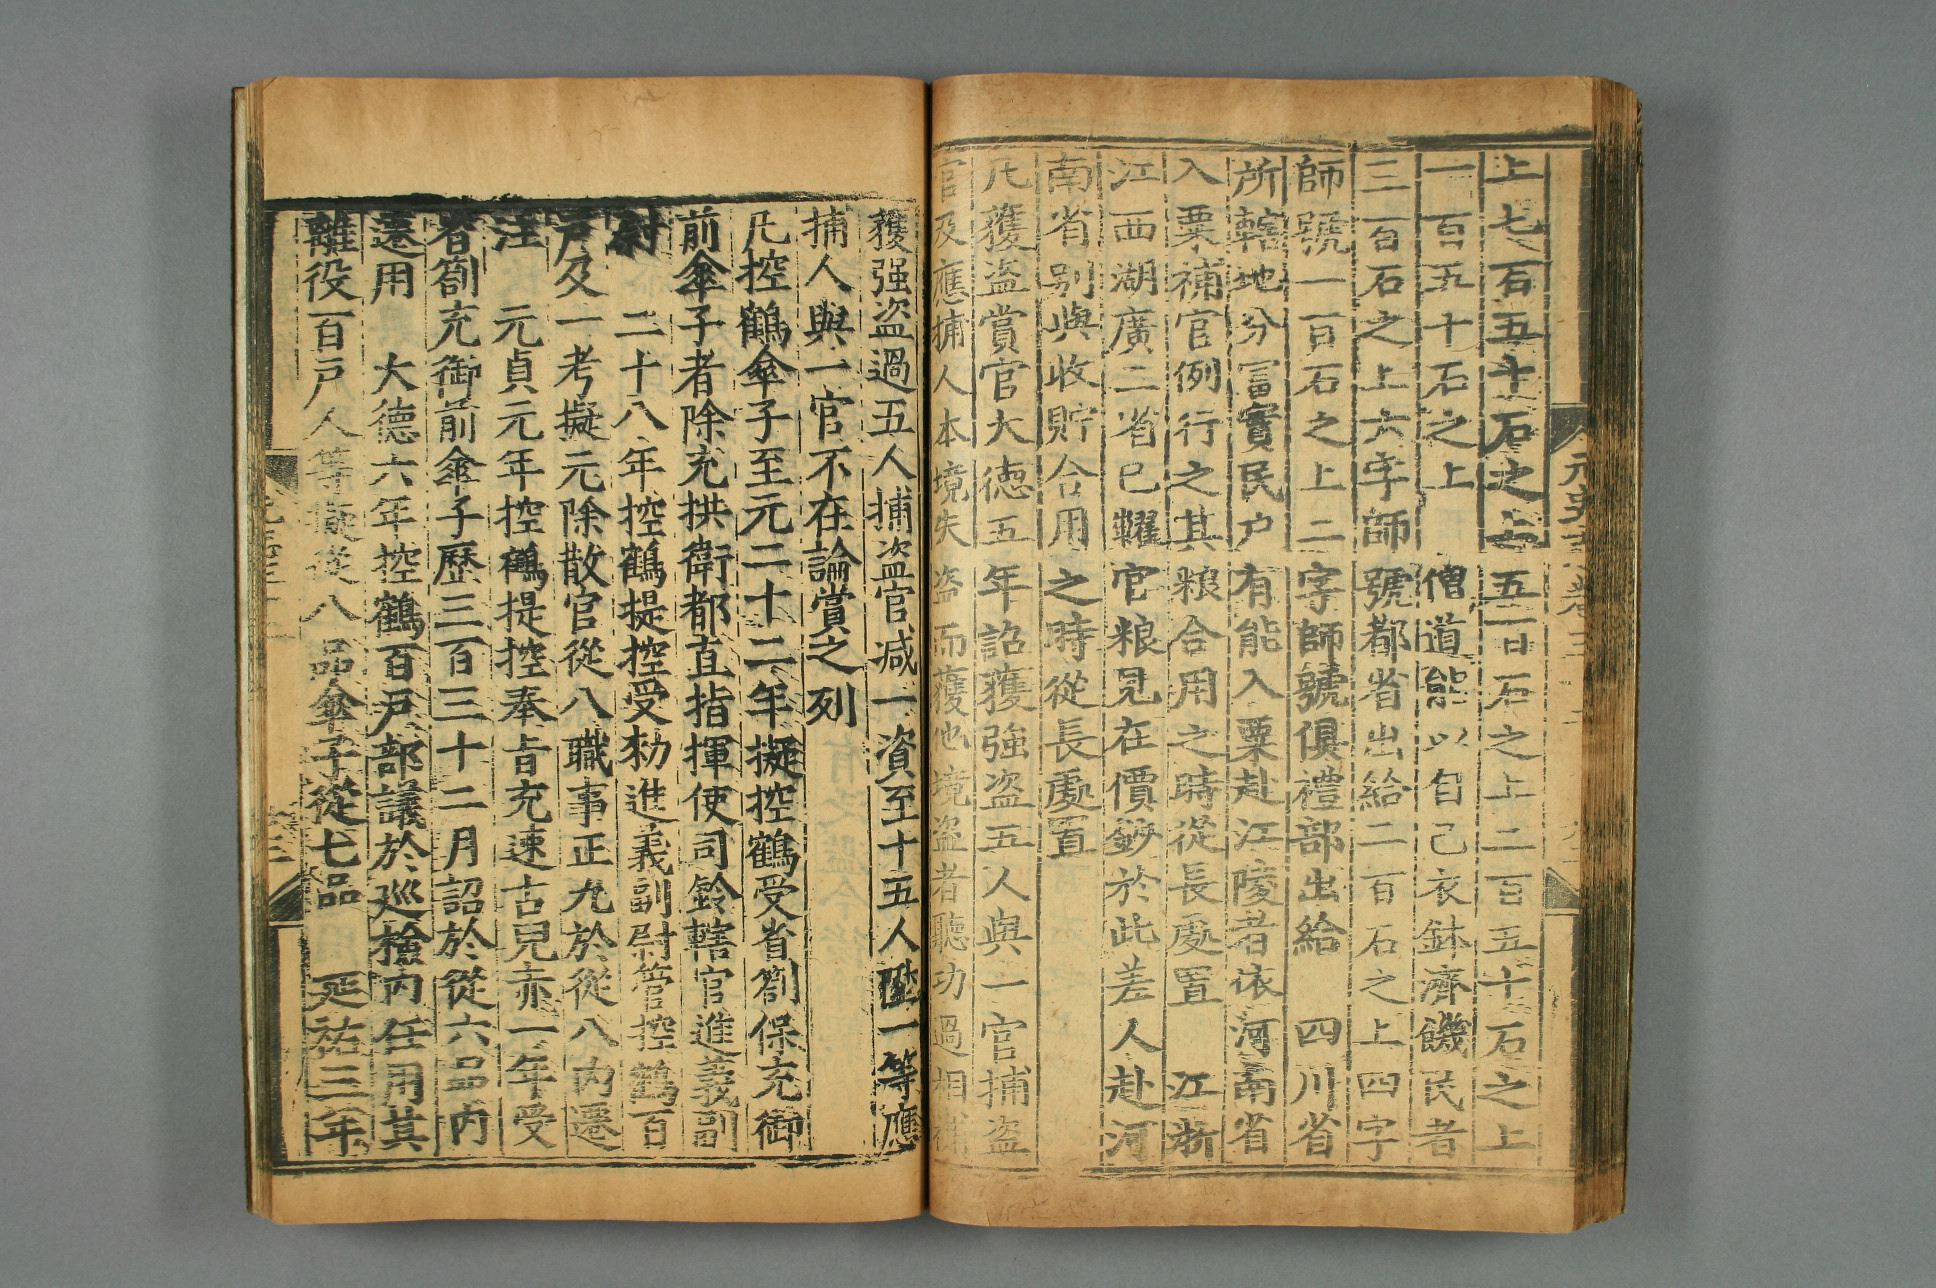 上七石五十石之上五一日石之上二百五十石之上
一百五十石之上　僧道能以自己衣鉢濟饑民者
三百石之上六字師號都省出給二百石之上四字
師號一百石之上二字師號俱禮部出給　四川省
所轄地分富實民户有能入粟赴江陵者依河南省
入粟補官例行之其粮合用之時從長處置　江浙
江西湖廣二省已糶官粮見在價鈔於此差人赴河
南省别與收貯合用之時從長處置
凡獲盗賞官大德五年詔獲強盗五人與一官捕盗
官及應捕人本境失盗而獲他境盗者聽功過相補
獲强盗過五人捕盗官减一資至十五人陞一等應
捕人與一官不在論賞之列
凡控鶴傘子至元二十二年擬控鶴受省劄保充御
前傘子者除充拱衛都直指揮使司鈐轄官進義副
尉　二十八年控鶴提控受勑進義副尉管控鶴百
戸及一考擬元除散官從八職事正九於從八内遷
注　元貞元年控鶴提控奉旨充速古兒赤一年受
省劄充御前傘子歷三百三十二月詔於從六品内
遷用　大德六年控鶴百戸部議於巡檢内任用其
離役百戸人等擬從八品傘子從七品　延祐三年